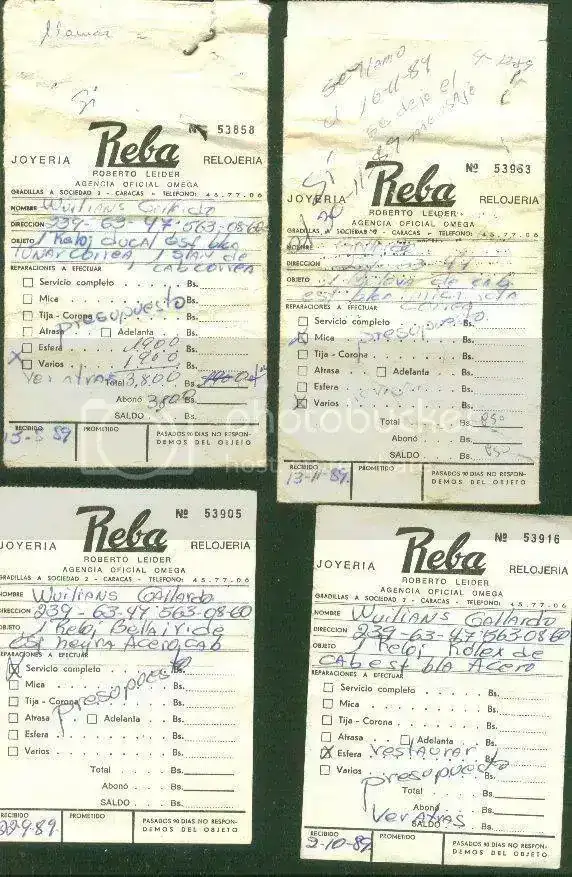 llamar
Si
Nº 53858
JOYERIA Reba RELOJERIA
ROBERTO LEIDER
AGENCIA OFICIAL OMEGA
GRADILLAS A SOCIEDAD 2 - CARACAS - TELEFONO: 45.77.06
NOMBRE Wuilians
DIRECCION 239-63-47 563-0860
OBJETO 1 Reloj Ducal esf bla
REPARACIONES A EFECTUAR
Servicio completo Bs.
Mica Bs.
presupuesto
Tija - Corona Bs.
Atrasa Adelanta Bs.
x Esfera 1900 Bs.
Varios 1900 Bs.
Ver atras Total 3,800 Bs.
Abonó 3,800 Bs.
SALDO Bs.
RECIBIDO PROMETIDO PASADOS 90 DIAS NO RESPON-
DEMOS DEL OBJETO
Se llamo
16-11-89
se dejo el
mensaje
Si
Nº 53963
JOYERIA Reba RELOJERIA
ROBERTO LEIDER
AGENCIA OFICIAL OMEGA
GRADILLAS A SOCIEDAD 2 - CARACAS - TELEFONO: 45.77.06
NOMBRE
DIRECCION
OBJETO
REPARACIONES A EFECTUAR
Servicio completo Bs.
presupuesto
Mica Bs.
Tija - Corona Bs.
Atrasa Adelanta Bs.
Esfera Bs.
x Varios Bs.
Total Bs. 850
Abonó Bs.
SALDO Bs. 850
RECIBIDO PROMETIDO PASADOS 90 DIAS NO RESPON-
13-11-89. DEMOS DEL OBJETO
photobucket
Nº 53905
JOYERIA Reba RELOJERIA
ROBERTO LEIDER
AGENCIA OFICIAL OMEGA
GRADILLAS A SOCIEDAD 2 - CARACAS - TELEFONO: 45.77.06
NOMBRE Wuilians Gallardo
DIRECCION 239-63-47 563-0860
OBJETO 1 Reloj
esf negra Acero, cab
REPARACIONES A EFECTUAR
x Servicio completo Bs.
Mica Bs.
presupuesto
Tija - Corona Bs.
Atrasa Adelanta Bs.
Esfera Bs.
Varios Bs.
Total Bs.
Abonó Bs.
SALDO Bs.
RECIBIDO PROMETIDO PASADOS 90 DIAS NO RESPON-
22-9-89. DEMOS DEL OBJETO
Nº 53916
JOYERIA Reba RELOJERIA
ROBERTO LEIDER
AGENCIA OFICIAL OMEGA
GRADILLAS A SOCIEDAD 2 - CARACAS - TELEFONO: 45.77.06
NOMBRE Wuilians Gallardo
DIRECCION 239-63-47 563-0860
OBJETO 1 Reloj Rolex de
cab esf bla Acero
REPARACIONES A EFECTUAR
Servicio completo Bs.
Mica Bs.
Tija - Corona Bs.
Atrasa Adelanta Bs.
x Esfera restaurar Bs.
Varios Bs.
presupuesto
Total Bs.
Abonó Bs.
Ver atras
SALDO Bs.
RECIBIDO PROMETIDO PASADOS 90 DIAS NO RESPON-
2-10-89 DEMOS DEL OBJETO